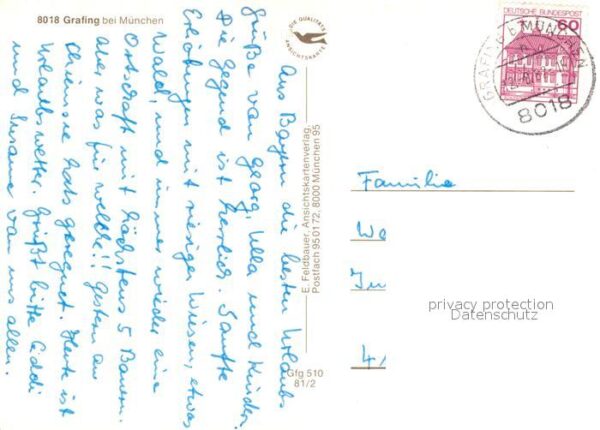 8018 Grafing bei München
DIE QUALITÄTS
ANSICHTSKARTE
Aus Bayern die besten Urlaubs
grüße von Georg, Ulla und Kinder.
Die Gegend ist herrlich. Sanfte
Erhebungen mit riesigen Wiesen, etwas
Wald, und immer wieder eine
Ortschaft mit höchstens 5 Bauern.
aber was für welche!! Gestern am
Chiemsee hats geregnet. Heute ist
Urlaubswetter. Grüßt bitte Eddi
und Susanne von uns allen.
E. Feldbauer, Ansichtskartenverlag,
Postfach 95 01 72, 8000 München 95
Gfg 510
81/2
DEUTSCHE BUNDESPOST
60
GRAFING b MÜNCHEN
8018
Familie
We
In
4
privacy protection
Datenschutz